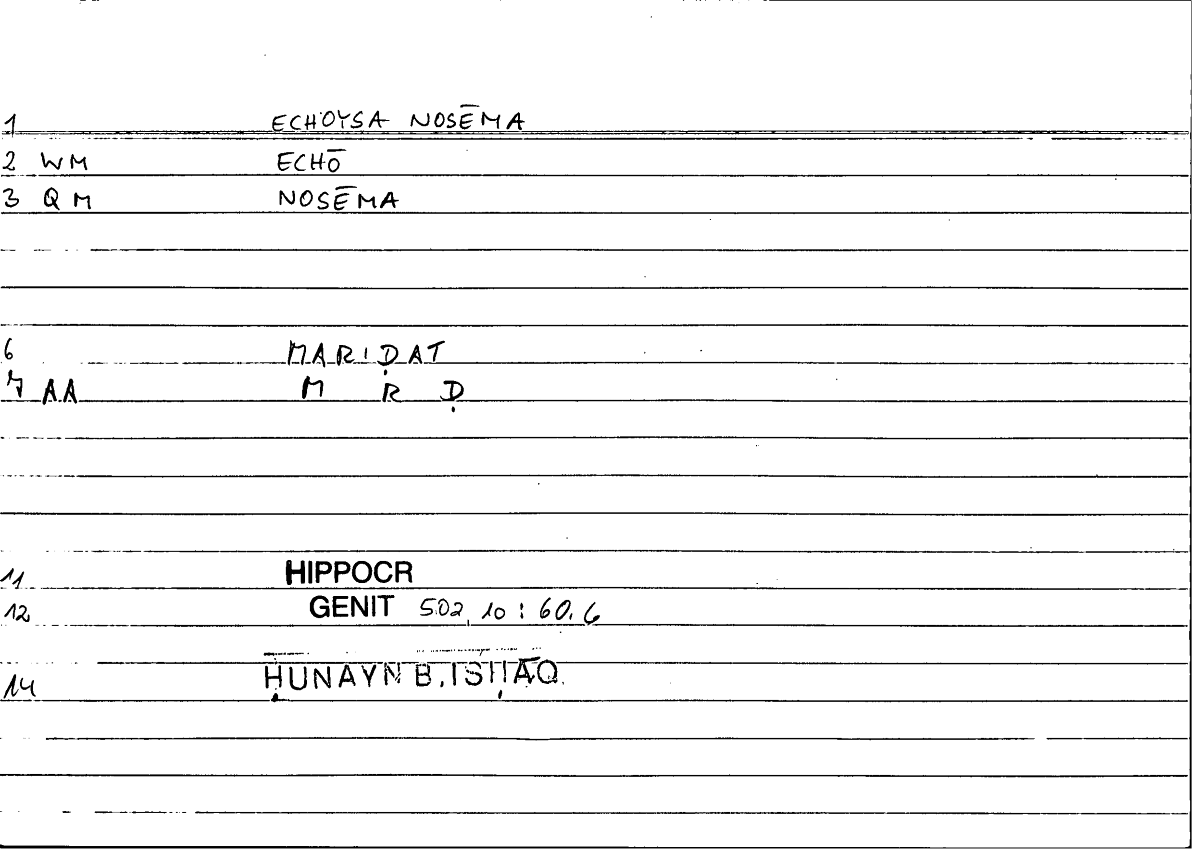 1 ECHOYSA NOSĒMA
2 WM ECHŌ
3 QM NOSĒMA
6 MARIḌAT
7 AA M R Ḍ
11 HIPPOCR
12 GENIT 502,10:60.6
14 ḤUNAYN B.ISḤĀQ